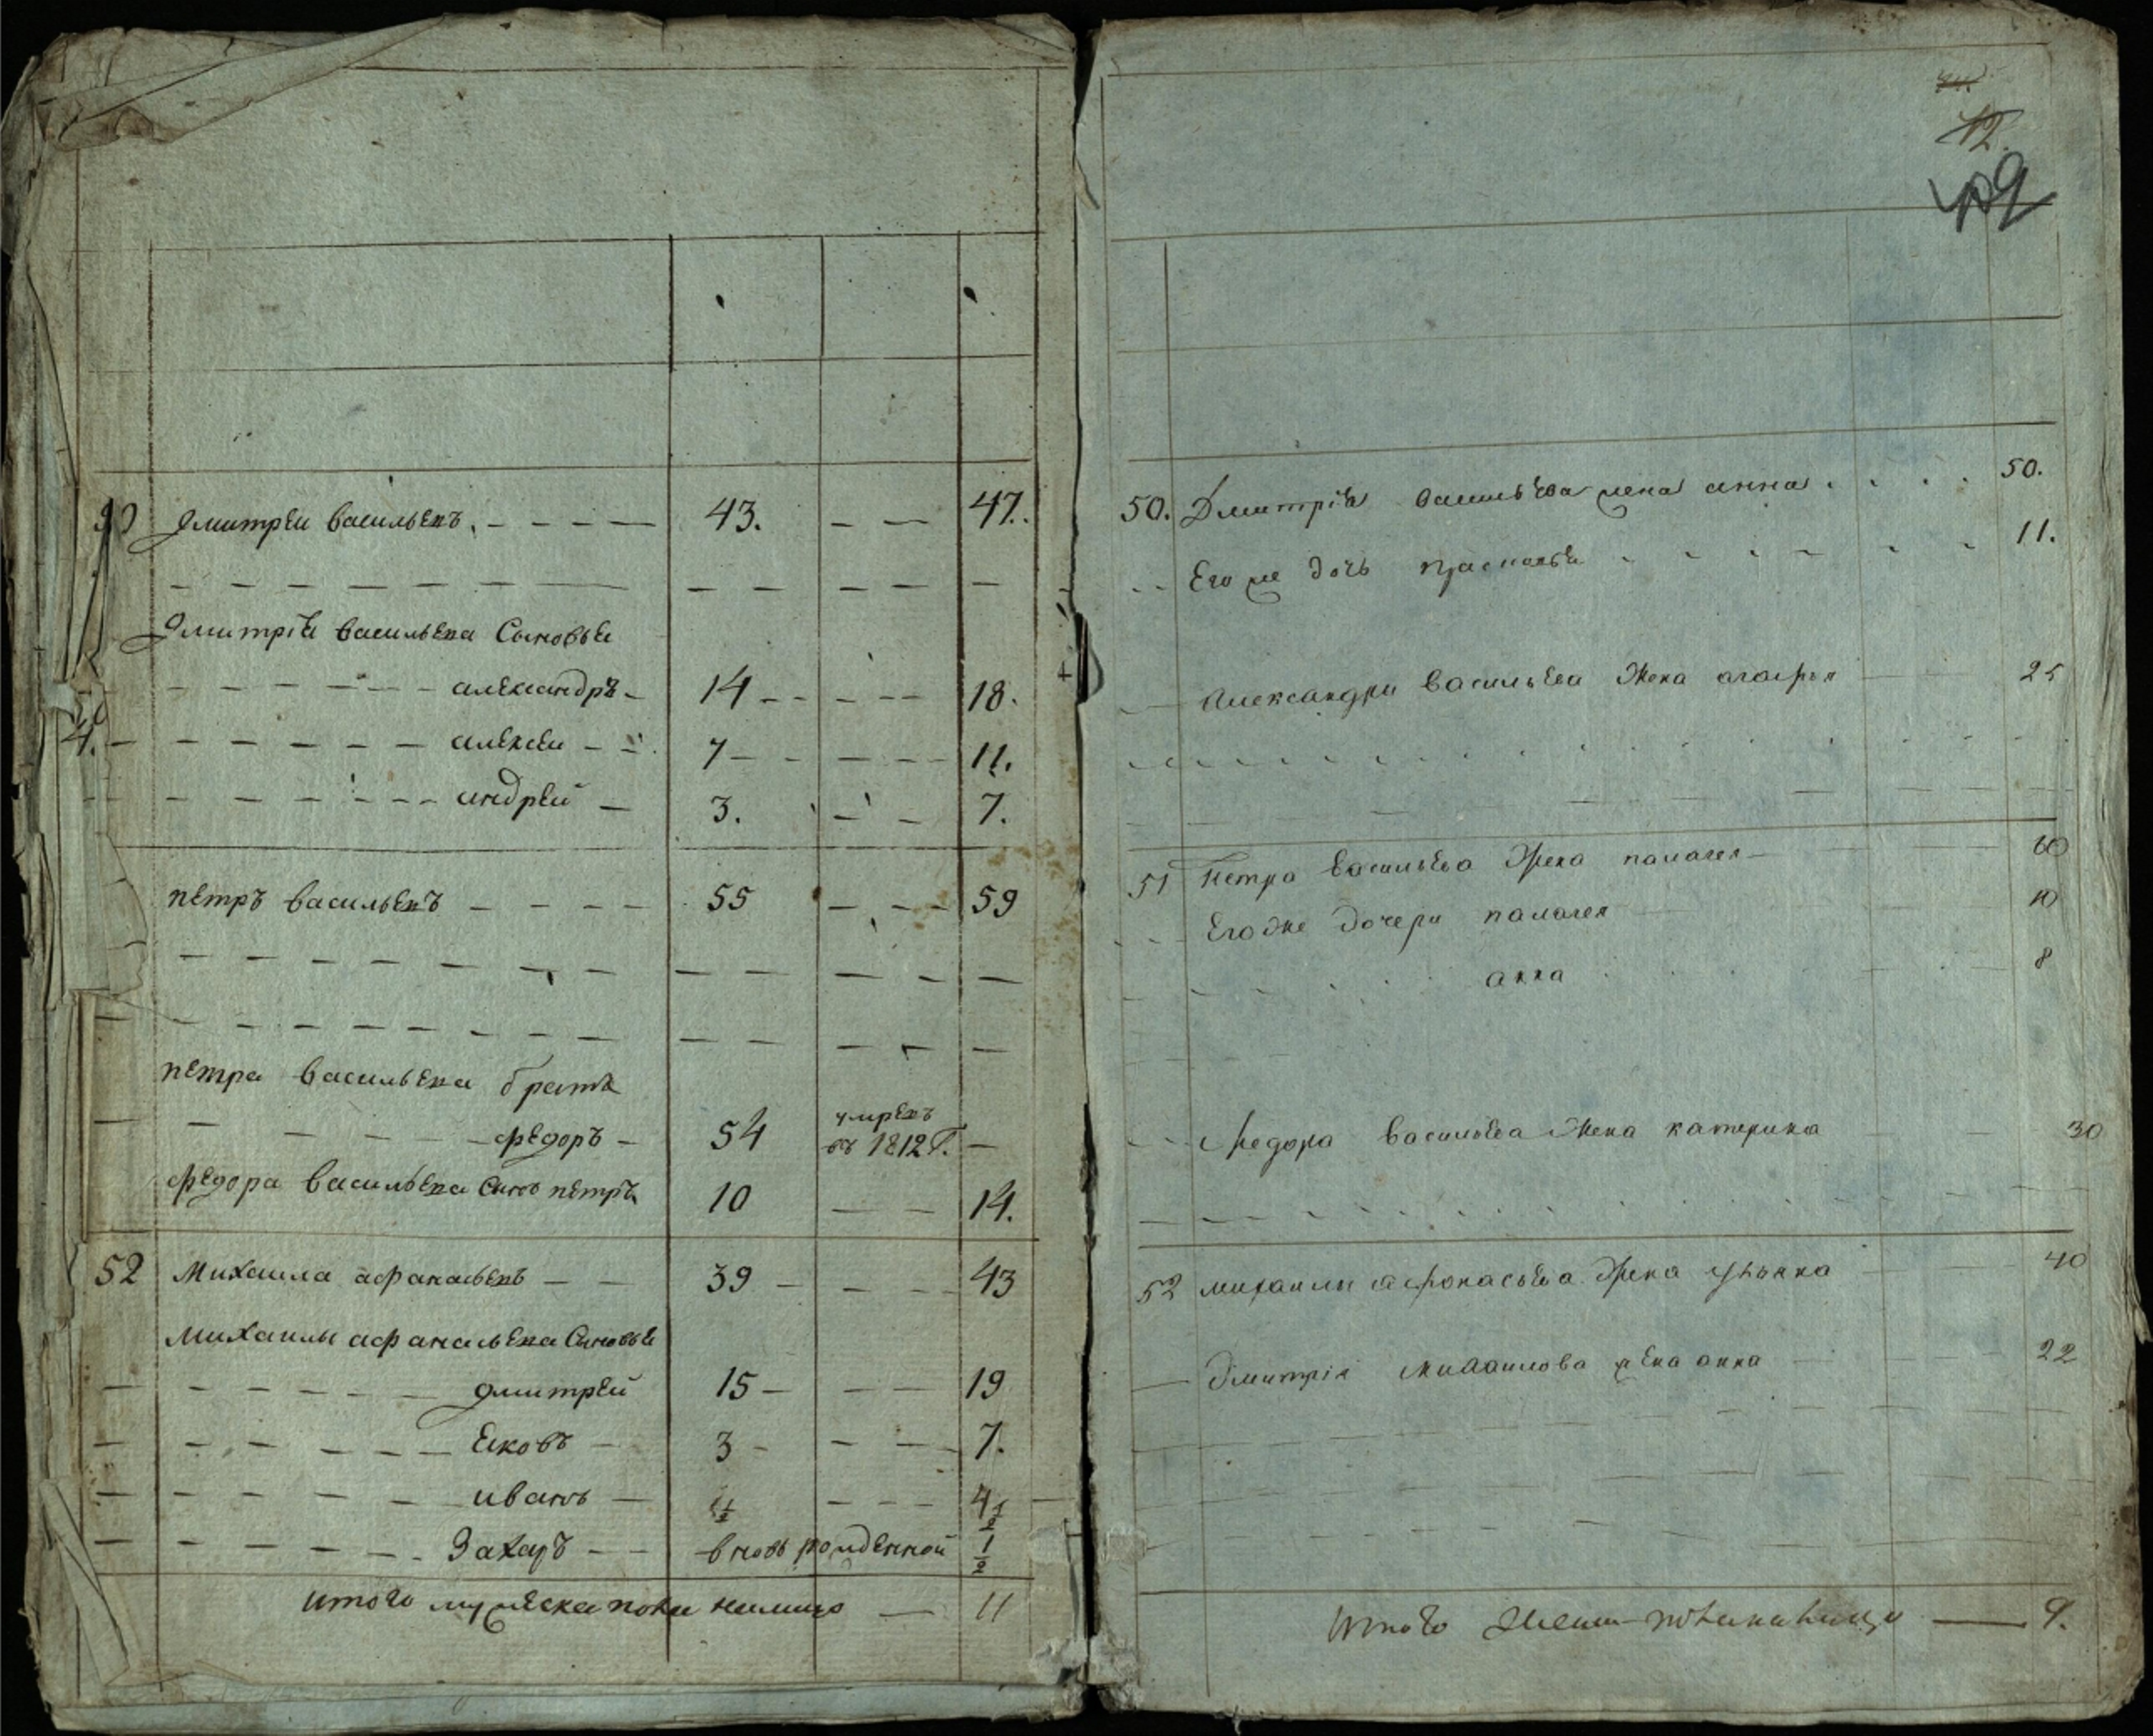 50 Дмитреи васильевъ. 43. 47.
Дмитрiа васильева Сыновья
александръ 14 18.
4. алексеи 7 11.
андрей 3. 7.
петръ васильевъ 55 59
петра васильева братъ
умревъ
федоръ 54 въ 1812 Г.
федора васильева Сынъ петръ 10 14.
52 Михаила афанасьевъ 39 43
Михаилы афанасьева Сыновья
дмитрей 15 19
Ековъ 3 7.
иванъ 1/2 4 1/2
Захаръ вновь рожденной 1/2
итого мужеска пола налицо 11
12.
9
50. Дмитрiа васильева жена анна 50.
Его же дочь прасковья 11.
Александра васильева Жена агафья 25
51 Петра васильева Жена палагея 60
Егоже дочери палагея 10
анна 8
Федора васильева Жена катерина 30
52 михаилы афонасьева Жена ульяна 40
Дмитрiя михаилова жена анна 22
Итого женска пола налицо 9.